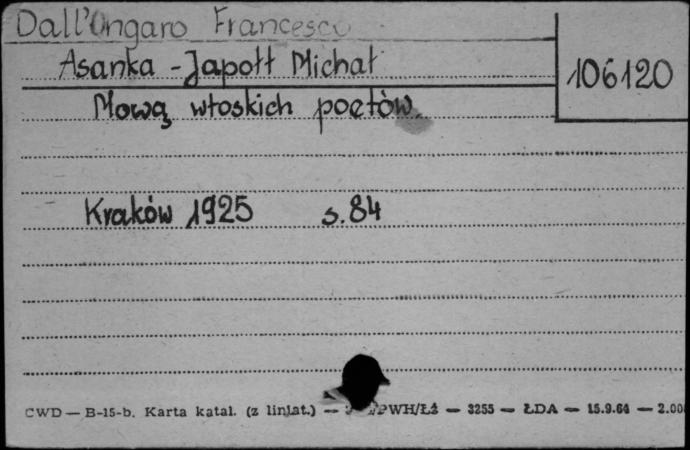 Dall'Ongaro Francesco
Asanka - Japołł Michał
106120
Mową włoskich poetów.
Kraków 1925 s. 84
CWD — B-15-b. Karta katal. (z liniat.) — PWH/Łż — 3255 — ŁDA — 15.9.64 — 2.00